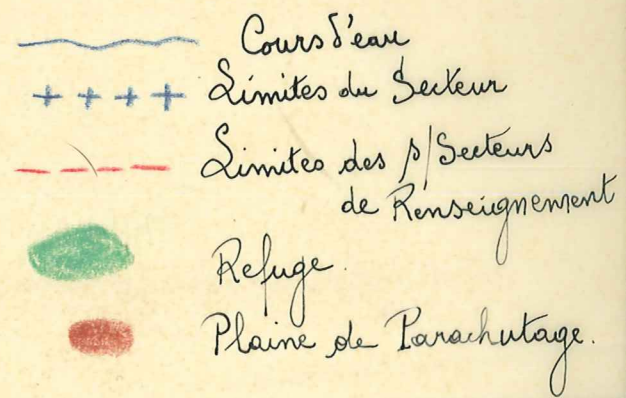 Cours d'eau
Limites du Secteur
Limites des s/Secteurs
de Renseignement
Refuge.
Plaine de Parachutage.